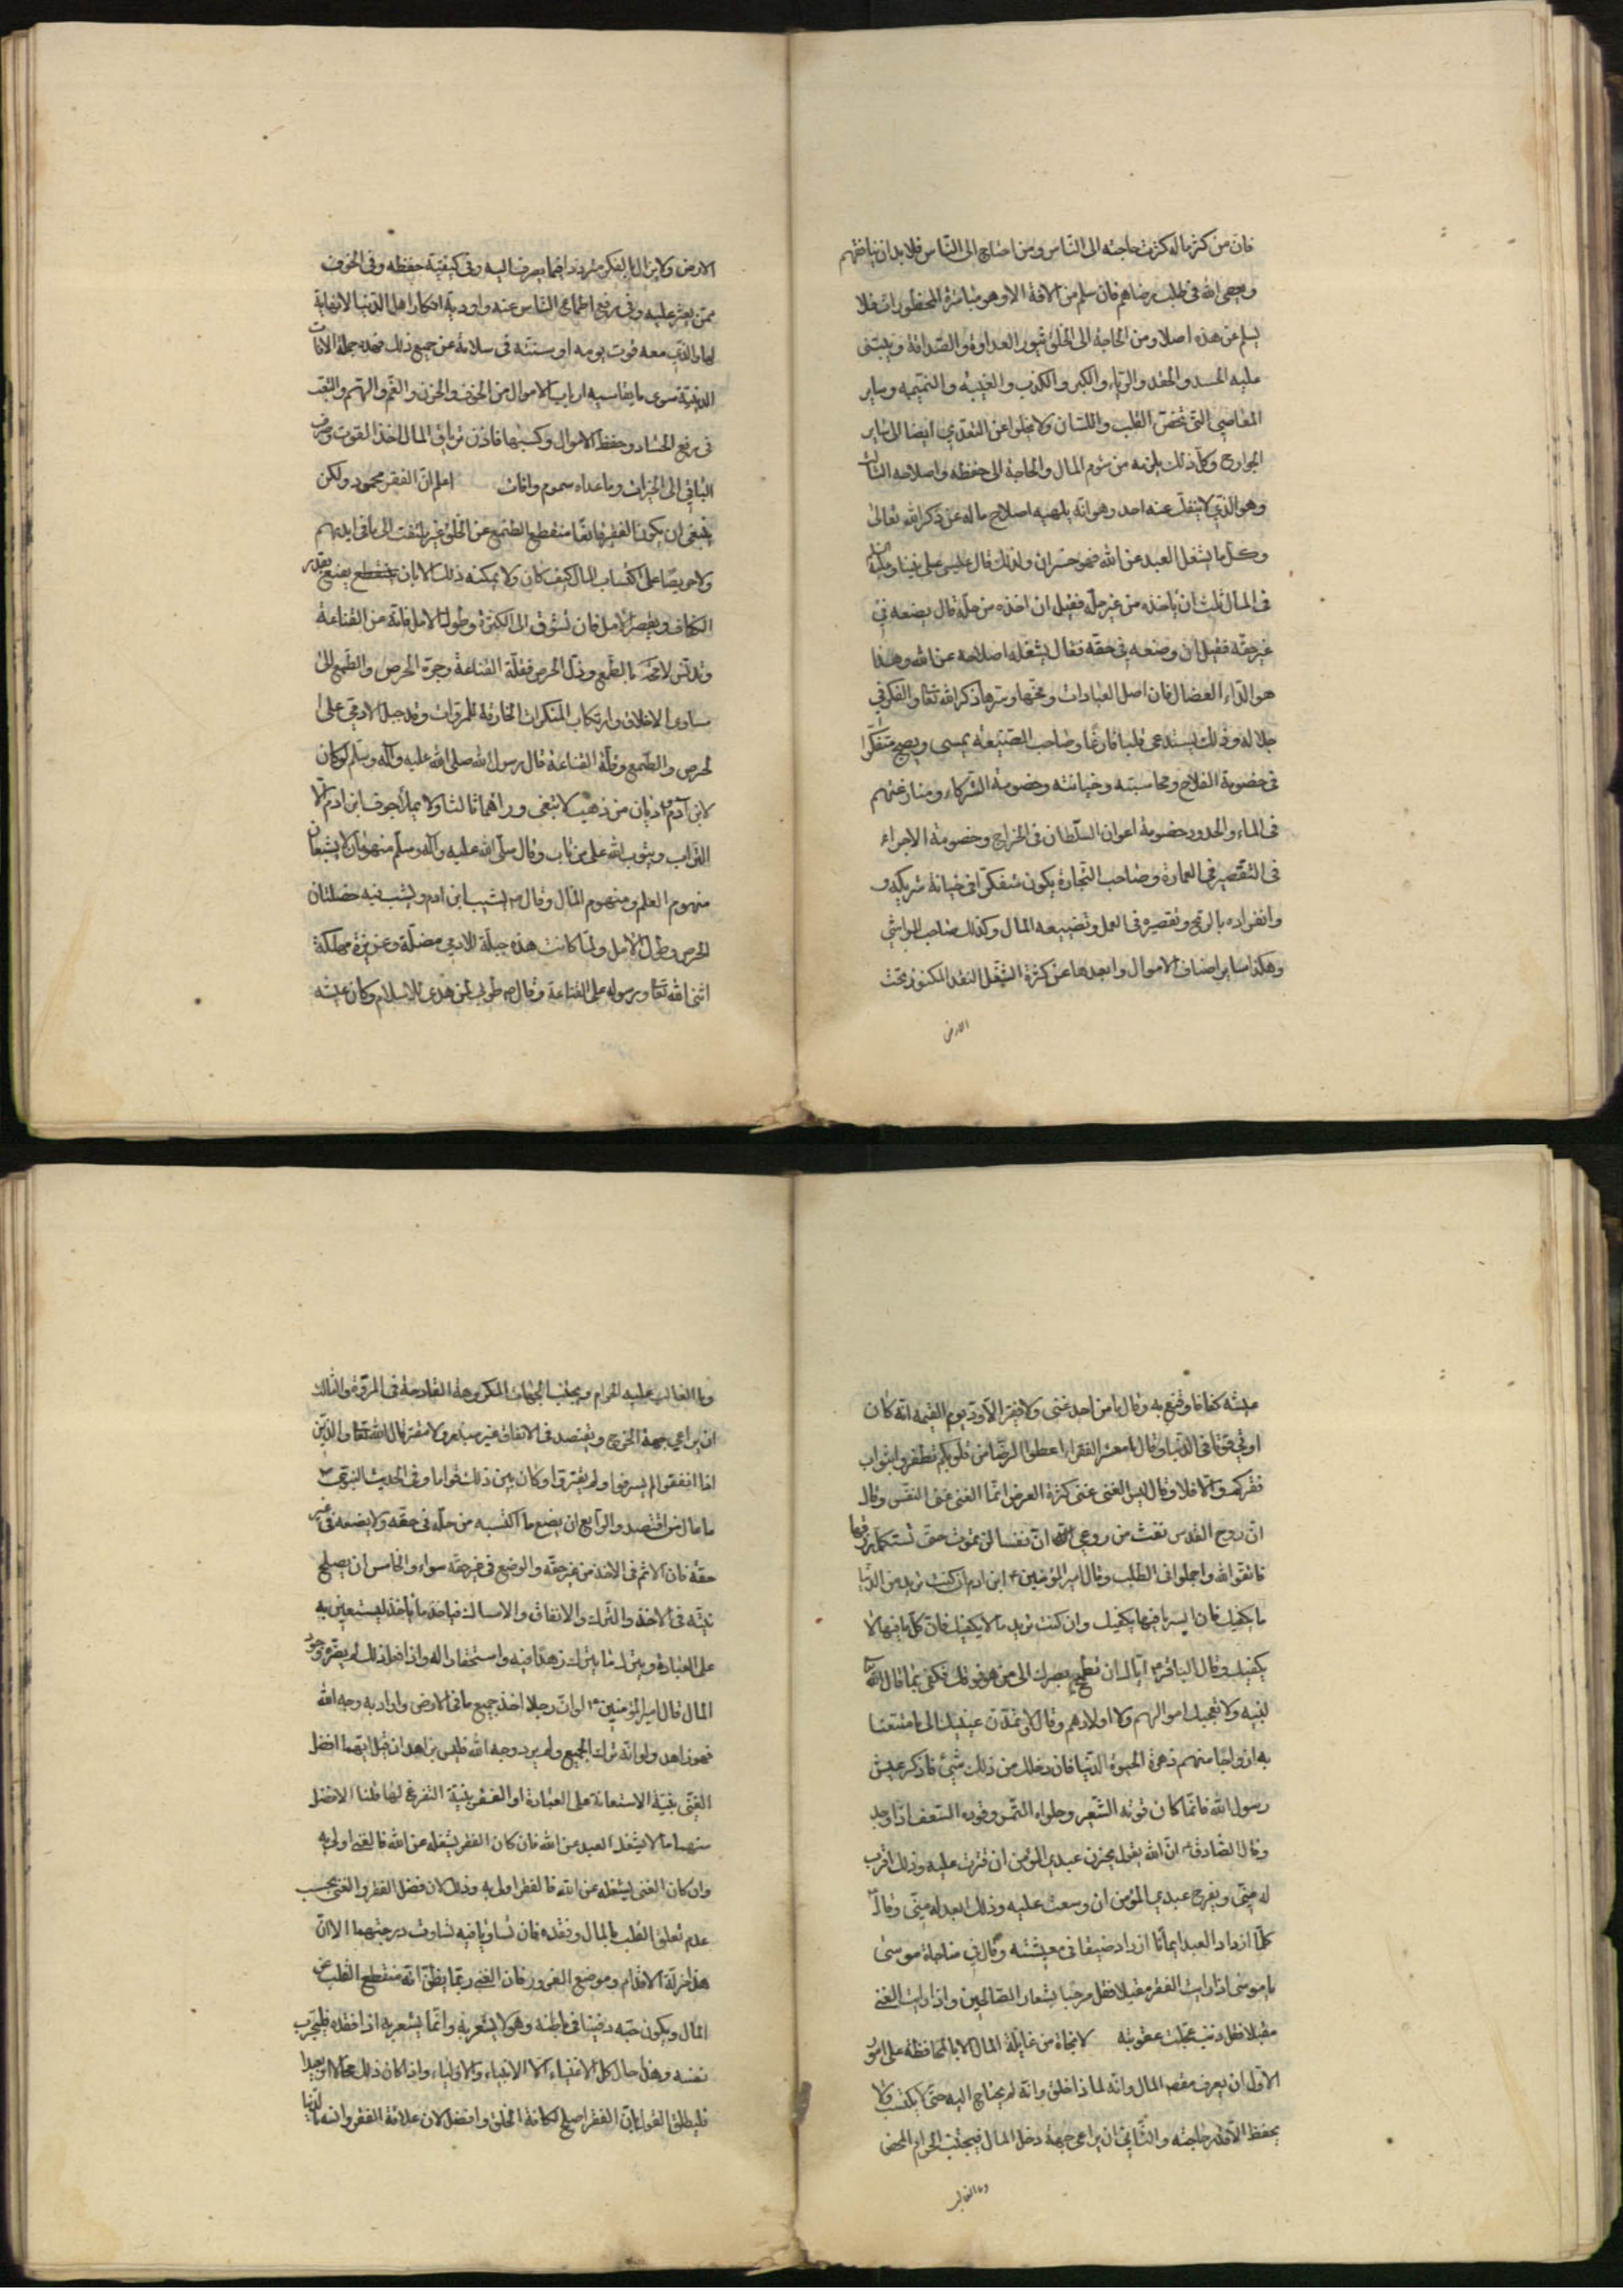 فان من كثر ماله كثرت حاجته الى الناس ومن احتاج الى الناس فلا بد ان ينافقهم
ويعصى الله فى طلب رضاهم فان سلم من الافة الاولى وهو مباشرة المحظورات فلا
يسلم عن هذه اصلا ومن الحاجة الى الخلق تثور العداوة والصداقة ويبتنى
عليه الحسد والحقد والرياء والكبر والكذب والغيبة والنميمة وساير
المعاصى التى تخص القلب واللسان ولا يخلوا عن التعدى ايضا الى ساير
الجوارح وكل ذلك يلزمه من شوم المال والحاجة الى حفظه واصلاحه الثالث
وهو الذى لا ينفك عنه احد وهو انه يلهيه اصلاح ماله عن ذكر الله تعالى
وكل ما يشغل العبد عن الله فهو خسران ولذلك قال عيسى على نبينا وعليه السلم
فى المال ثلث ان ياخذه من غير حله فقيل ان اخذه من حله قال يضعه فى
غير حقه فقيل ان وضعه فى حقه فقال يشغله اصلاحه عن الله وهذا
هو الداء العضال فان اصل العبادات ومخها وسرها ذكر الله تعا والفكر فى
جلاله وذلك يستدعى قلبا فارغا وصاحب الضيعة يمسى ويصبح متفكرا
فى خصومة الفلاح ومحاسبته وخيانته وخصومة الشركاء ومنازعتهم
فى الماء والحدود خصومة اعوان السلطان فى الخراج وخصومة الاجراء
فى التقصير فى العمارة وصاحب التجارة يكون متفكرا فى خيانة شريكه و
وانفراده بالربح وتقصيره فى العمل وتضييعه المال وكذلك صاحب المواشى
وهكذا ساير اصناف الاموال وابعدها عن كثرة الشغل النقد المكنوز تحت
الارض
الارض ولا يزال الفكر مترددا فيما يصرف اليه وفى كيفية حفظه وفى الخوف
ممن يعثر عليه وفى رفع اطماع الناس عنه واودية افكار اهل الدنيا لا نهاية
لها والذى معه قوت يومه او سنته فى سلامة عن جميع ذلك فهذه جملة الافات
الدنيوية سوى ما يقاسيه ارباب الاموال من الخوف والحزن والغم والهم والتعب
فى رفع الحساد وحفظ الاموال وكسبها فاذن ترياق المال اخذ القوت وصرف
الباقى الى الخيرات وما عداه سموم وافات اعلم ان الفقر محمود ولكن
ينبغى ان يكون الفقير قانعا منقطع الطمع عن الخلق غير ملتفت الى ما فى ايديهم
ولا حريصا على اكتساب المال كيف كان ولا يمكنه ذلك الا بان يقنع بقدر
الكفاف ويقصر الامل فان تشوق الى الكثرة وطول الامل فاته عن القناعة
وتدنس لا محة بالطمع وذل الحرص فقلة القناعة وجره الحرص والطمع الى
مساوى الاخلاق وارتكاب المنكرات الخارقة للمروات وقد جبل الادمى على ا
لحرص والطمع وقلة القناعة قال رسول الله صلى الله عليه وآله وسلم لو كان
لابن آدم واديان من ذهب لابتغى وراهما ثالثا ولا يملأ جوف ابن ادم الا
التراب ويتوب الله على من تاب وقال صلى الله عليه وآله وسلم منهومان لا يشبعان
منهوم العلم ومنهوم المال وقال ص يشيب ابن ادم ويشب فيه خصلتان
الحرص وطول الامل ولما كانت هذه جبلة للادمى مضلة وغريزة مهلكة
اثنى الله تعا ورسوله على القناعة وقال ص طوبى لمن هدى للاسلام وكان عيشه
عيشه كفافا وقنع به وقال ما من احد غنى ولا فقير الا ود يوم القيمة انه كان
اوتى قوتا فى الدنيا وقال يا معشر الفقراء اعطوا الرضا من قلوبكم تظفروا بثواب
فقركم والا فلا وقال ليس الغنى عن كثرة العرض انما الغنى غنى النفس وقال
ان روح القدس نفث من روعى ان نفسا لن تموت حتى تستكمل رزقها
فاتقوا الله واجملوا فى الطلب وقال امير المؤمنين ع ابن ادم ان كنت تريد من الدنيا
ما يكفيك فان ايسر ما فيها يكفيك وان كنت تريد ما لا يكفيك فان كل ما فيها لا
يكفيك وقال الباقر ع اياك ان تطمح بصرك الى من هو فوقك فكفى بما قال الله تعا
لنبيه ولا تعجبك اموالهم ولا اولادهم وقال لا تمدن عينيك الى ما متعنا
به ازواجا منهم زهرة الحيوة الدنيا فان دخلك من ذلك شئ فاذكر عيش
رسول الله فانما كان قوته الشعير وحلواه التمر وقوده السعف اذا وجد
وقال الصادق ع ان الله يقول يحزن عبدى المؤمن ان قترت عليه وذلك اقرب
له منى ويفرح عبدى المؤمن ان وسعت عليه وذلك ابعد له منى وقال ع
كلما ازداد العبد ايمانا ازداد ضيقا فى معيشته وقال فى مناجاة موسى
يا موسى اذا رايت الفقر مقبلا فقل مرحبا بشعار الصالحين واذا رايت الغنى
مقبلا فقل ذنب عجلت عقوبته لا نجاة من غايلة المال الا بالمحافظة على امور
الاول ان يعرف مقصد المال وانه لماذا خلق وانه لم يحتاج اليه حتى لا يكتسب ولا
يحفظ الا قدر حاجته والثانى ان يراعى جهة دخل المال فيجتنب الحرام المحض
وما الغالب
وما الغالب عليه الحرام ويجتنب الجهات المكروهة القادحة فى المروة والثالث
ان يراعى جهة الخرج ويقتصد فى الانفاق غير مبذر ولا مقتر قال الله تعا والذين
اذا انفقوا لم يسرفوا ولم يقتروا وكان بين ذلك قواما وفى الحديث النبوى ص
ما عال من اقتصد والرابع ان يضع ما اكتسبه من حله فى حقه ولا يضعه فى غير
حقه فان الاثم فى الاخذ من غير حقه والوضع فى غير حقه سواء والخامس ان يصلح
نيته فى الاخذ والترك والانفاق والامساك فياخذ ما ياخذ ليستعين به
على العبادة ويترك ما يترك زهدا فيه واستحقارا له واذا فعل ذلك لم يضره وجود
المال قال امير المؤمنين ع لو ان رجلا اخذ جميع ما فى الارض واراد به وجه الله
فهو زاهد ولو انه ترك الجميع ولم يرد وجه الله فليس بزاهد ان قيل ايهما افضل
الغنى بنية الاستعانة على العبادة او الفقر بنية التفرغ لها قلنا الافضل
منهما ما لا يشغل العبد عن الله فان كان الفقر يشغله عن الله فالغنى اولى به
وان كان الغنى يشغله عن الله فالفقر اولى به وذلك لان فضل الفقر والغنى بحسب
عدم تعلق القلب بالمال وفقده فان تساويا فيه تساوت درجتهما الا ان
هذا مزلة الاقدام وموضع الغرور فان الغنى ربما يظن انه منقطع القلب عن
المال ويكون حبه دفينا فى باطنه وهو لا يشعر به وانما يشعر به اذا فقده فليجرب
نفسه وهذا حال كل الاغنياء الا الانبياء والاولياء واذا كان ذلك محالا او بعيدا
فليطلق القول بان الفقر اصلح لكافة الخلق وافضل لان علاقة الفقير وانسه بالدنيا